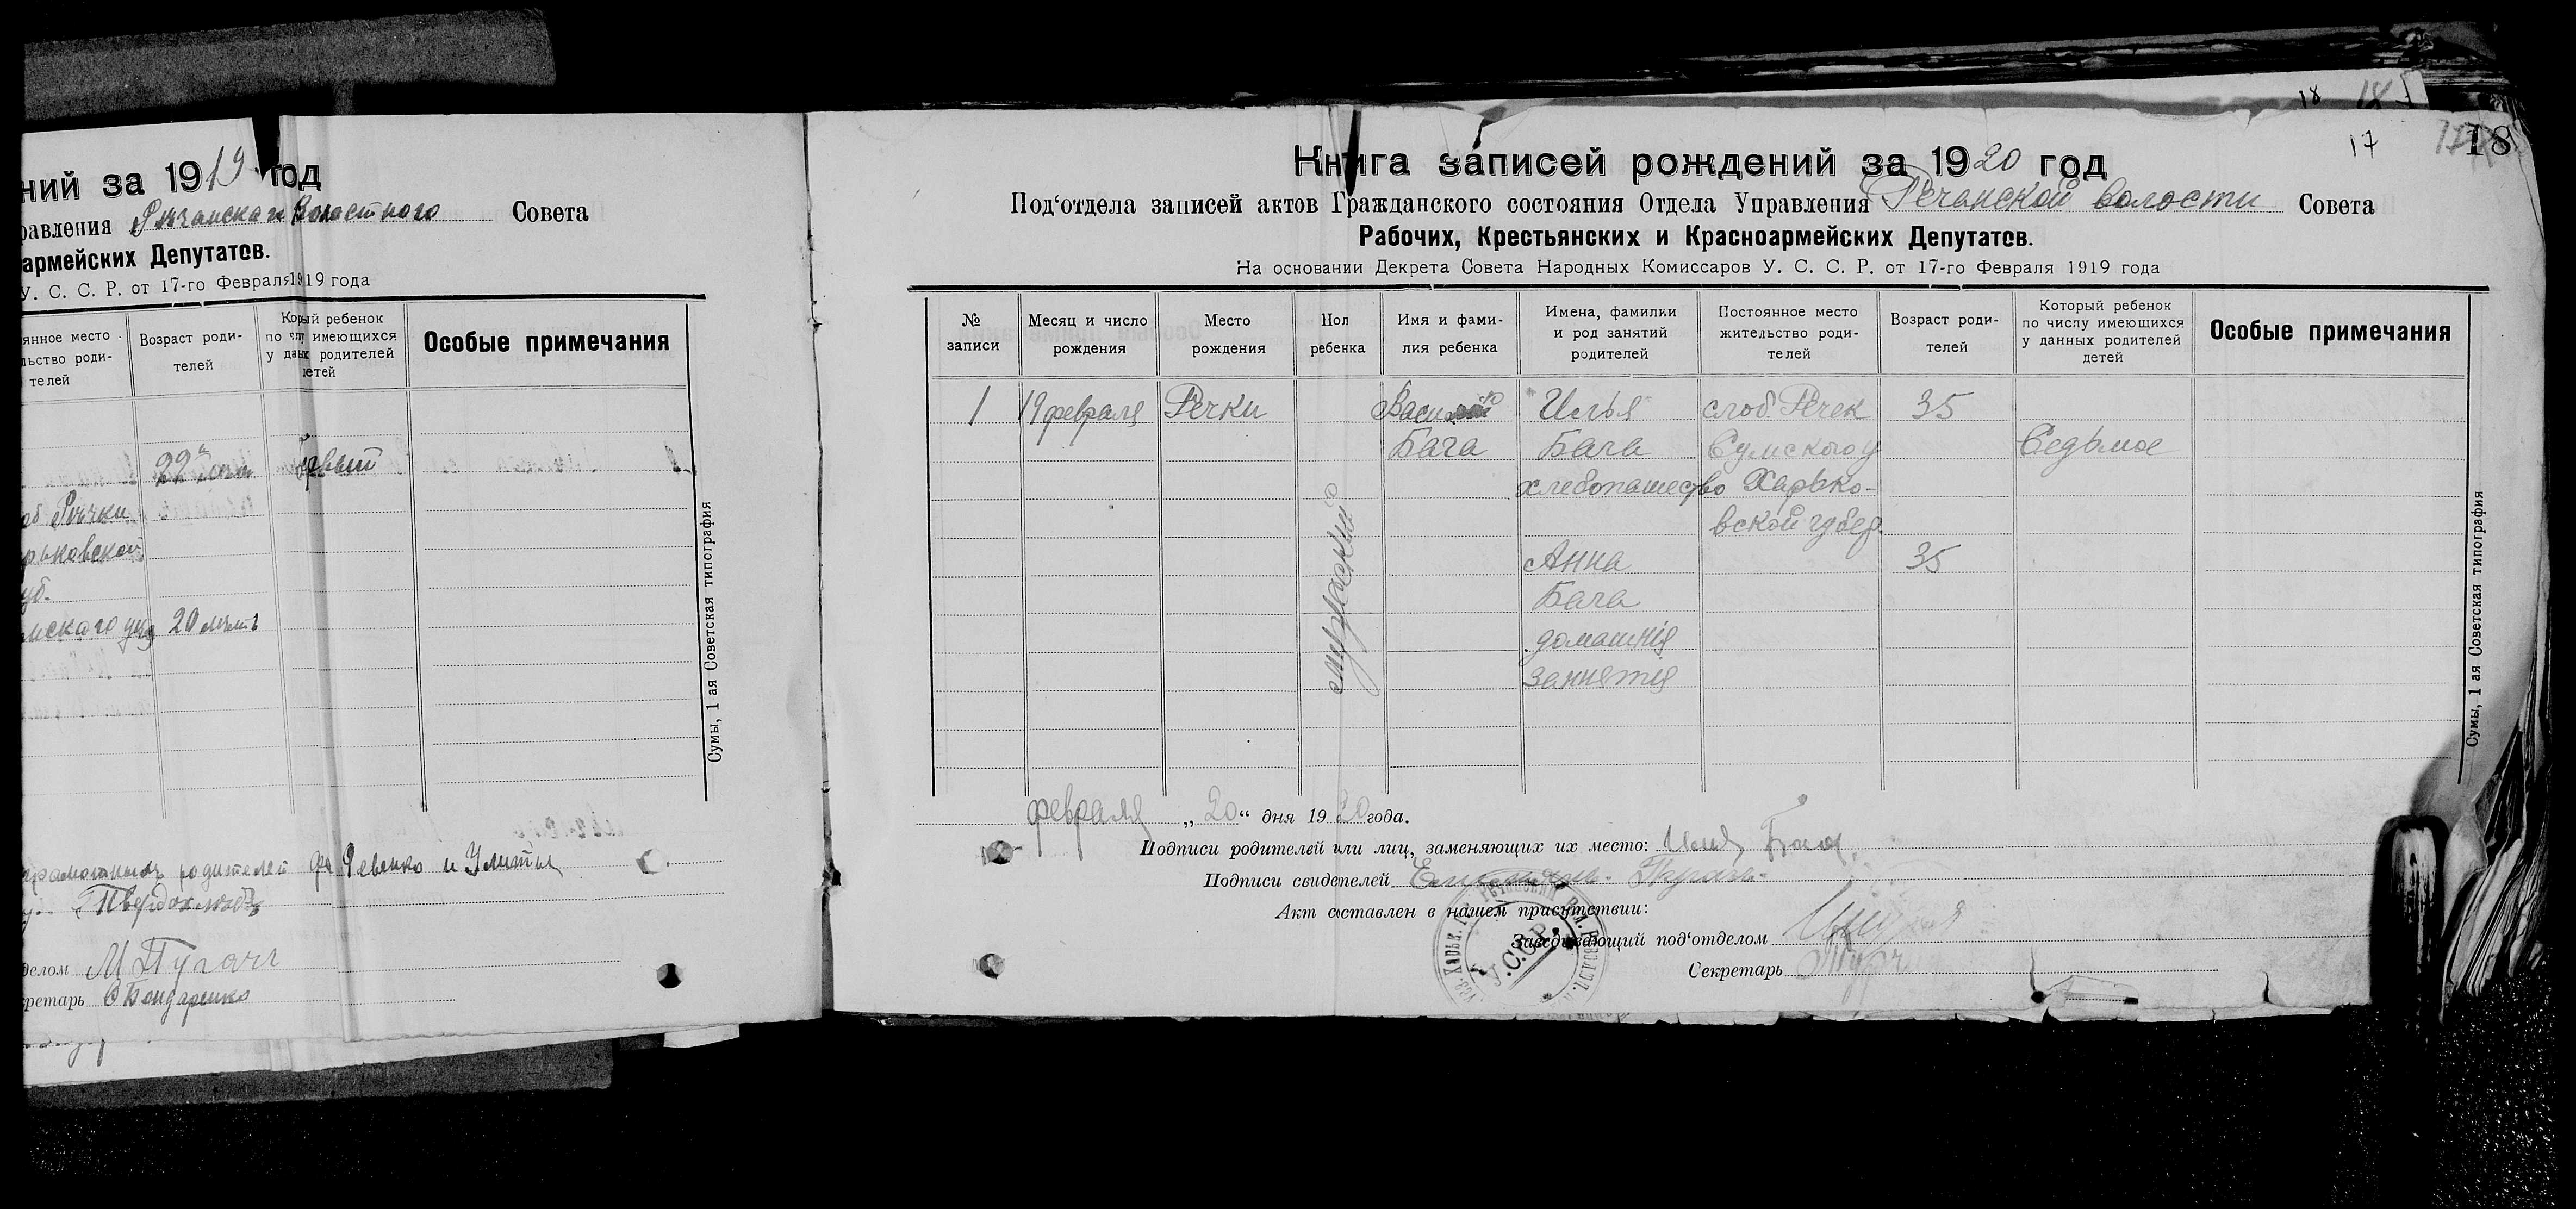 ний за 1919 год
равления Речанскаго Волостного Совета
армейских Депутатов.
У. С. С. Р. от 17-го Февраля 1919 года
янное место
льство роди-
телей
Возраст роди-
телей
Который ребенок
по числу имеющихся
у данных родителей
детей
Особые примечания
22
первый
об Речки
рьковской
губ.
мскаго уезд 20 летъ
Сумы, 1 ая Советская типография
родителей Ревенко и Улиты
Твердохлебъ
делом М Пугачъ
кретарь С Бондаренко
18 18
17 18
Книга записей рождений за 1920 год
Под‘отдела записей актов Гражданского состояния Отдела Управления Речанской волости Совета
Рабочих, Крестьянских и Красноармейских Депутатов.
На основании Декрета Совета Народных Комиссаров У. С. С. Р. от 17-го Февраля 1919 года
№
записи
Месяц и число
рождения
Место
рождения
Пол
ребенка
Имя и фами-
лия ребенка
Имена, фамилии
и род занятий
родителей
Постоянное место
жительство роди-
телей
Возраст роди-
телей
Который ребенок
по числу имеющихся
у данных родителей
детей
Особые примечания
1 19 февраля Речки Илья слоб. Речек 35
Бача Бача Сумского у Седьмое
хлебопашество Харько-
вской губер.
мужеский
Анна 35
Бача
домашнія
занятія
Сумы, 1 ая Советская типография
февраля „20“ дня 1920 года.
Подписи родителей или лиц, заменяющих их место: Илия Бача
Подписи свидетелей
Акт составлен в нашем присутствии:
Заведывающий под‘отделом
Секретарь
У.С.С.Р.